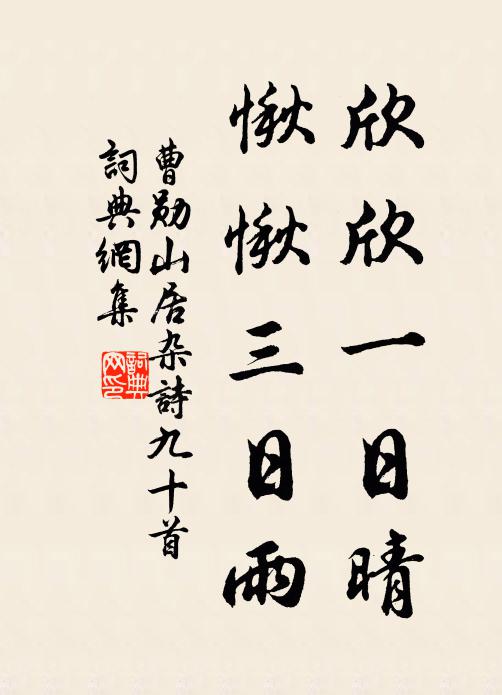 欣欣一日晴
愀愀三日雨
曹勋山居杂詩九十首
詞典網集
詞典网印